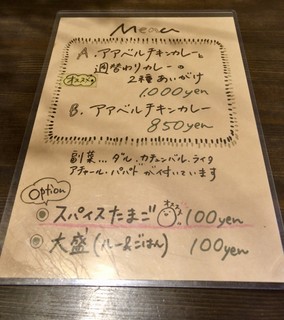 Menu
A. アアベルチキンカレーと
週替わりカレーの
オススメ
2種あいがけ
1,000yen
B. アアベルチキンカレー
850yen
副菜… ダル、カチュンバル、ライタ
アチャール、パパド が付いています
Option
スパイスたまご オススメ 100yen
大盛(ルー&ごはん) 100yen